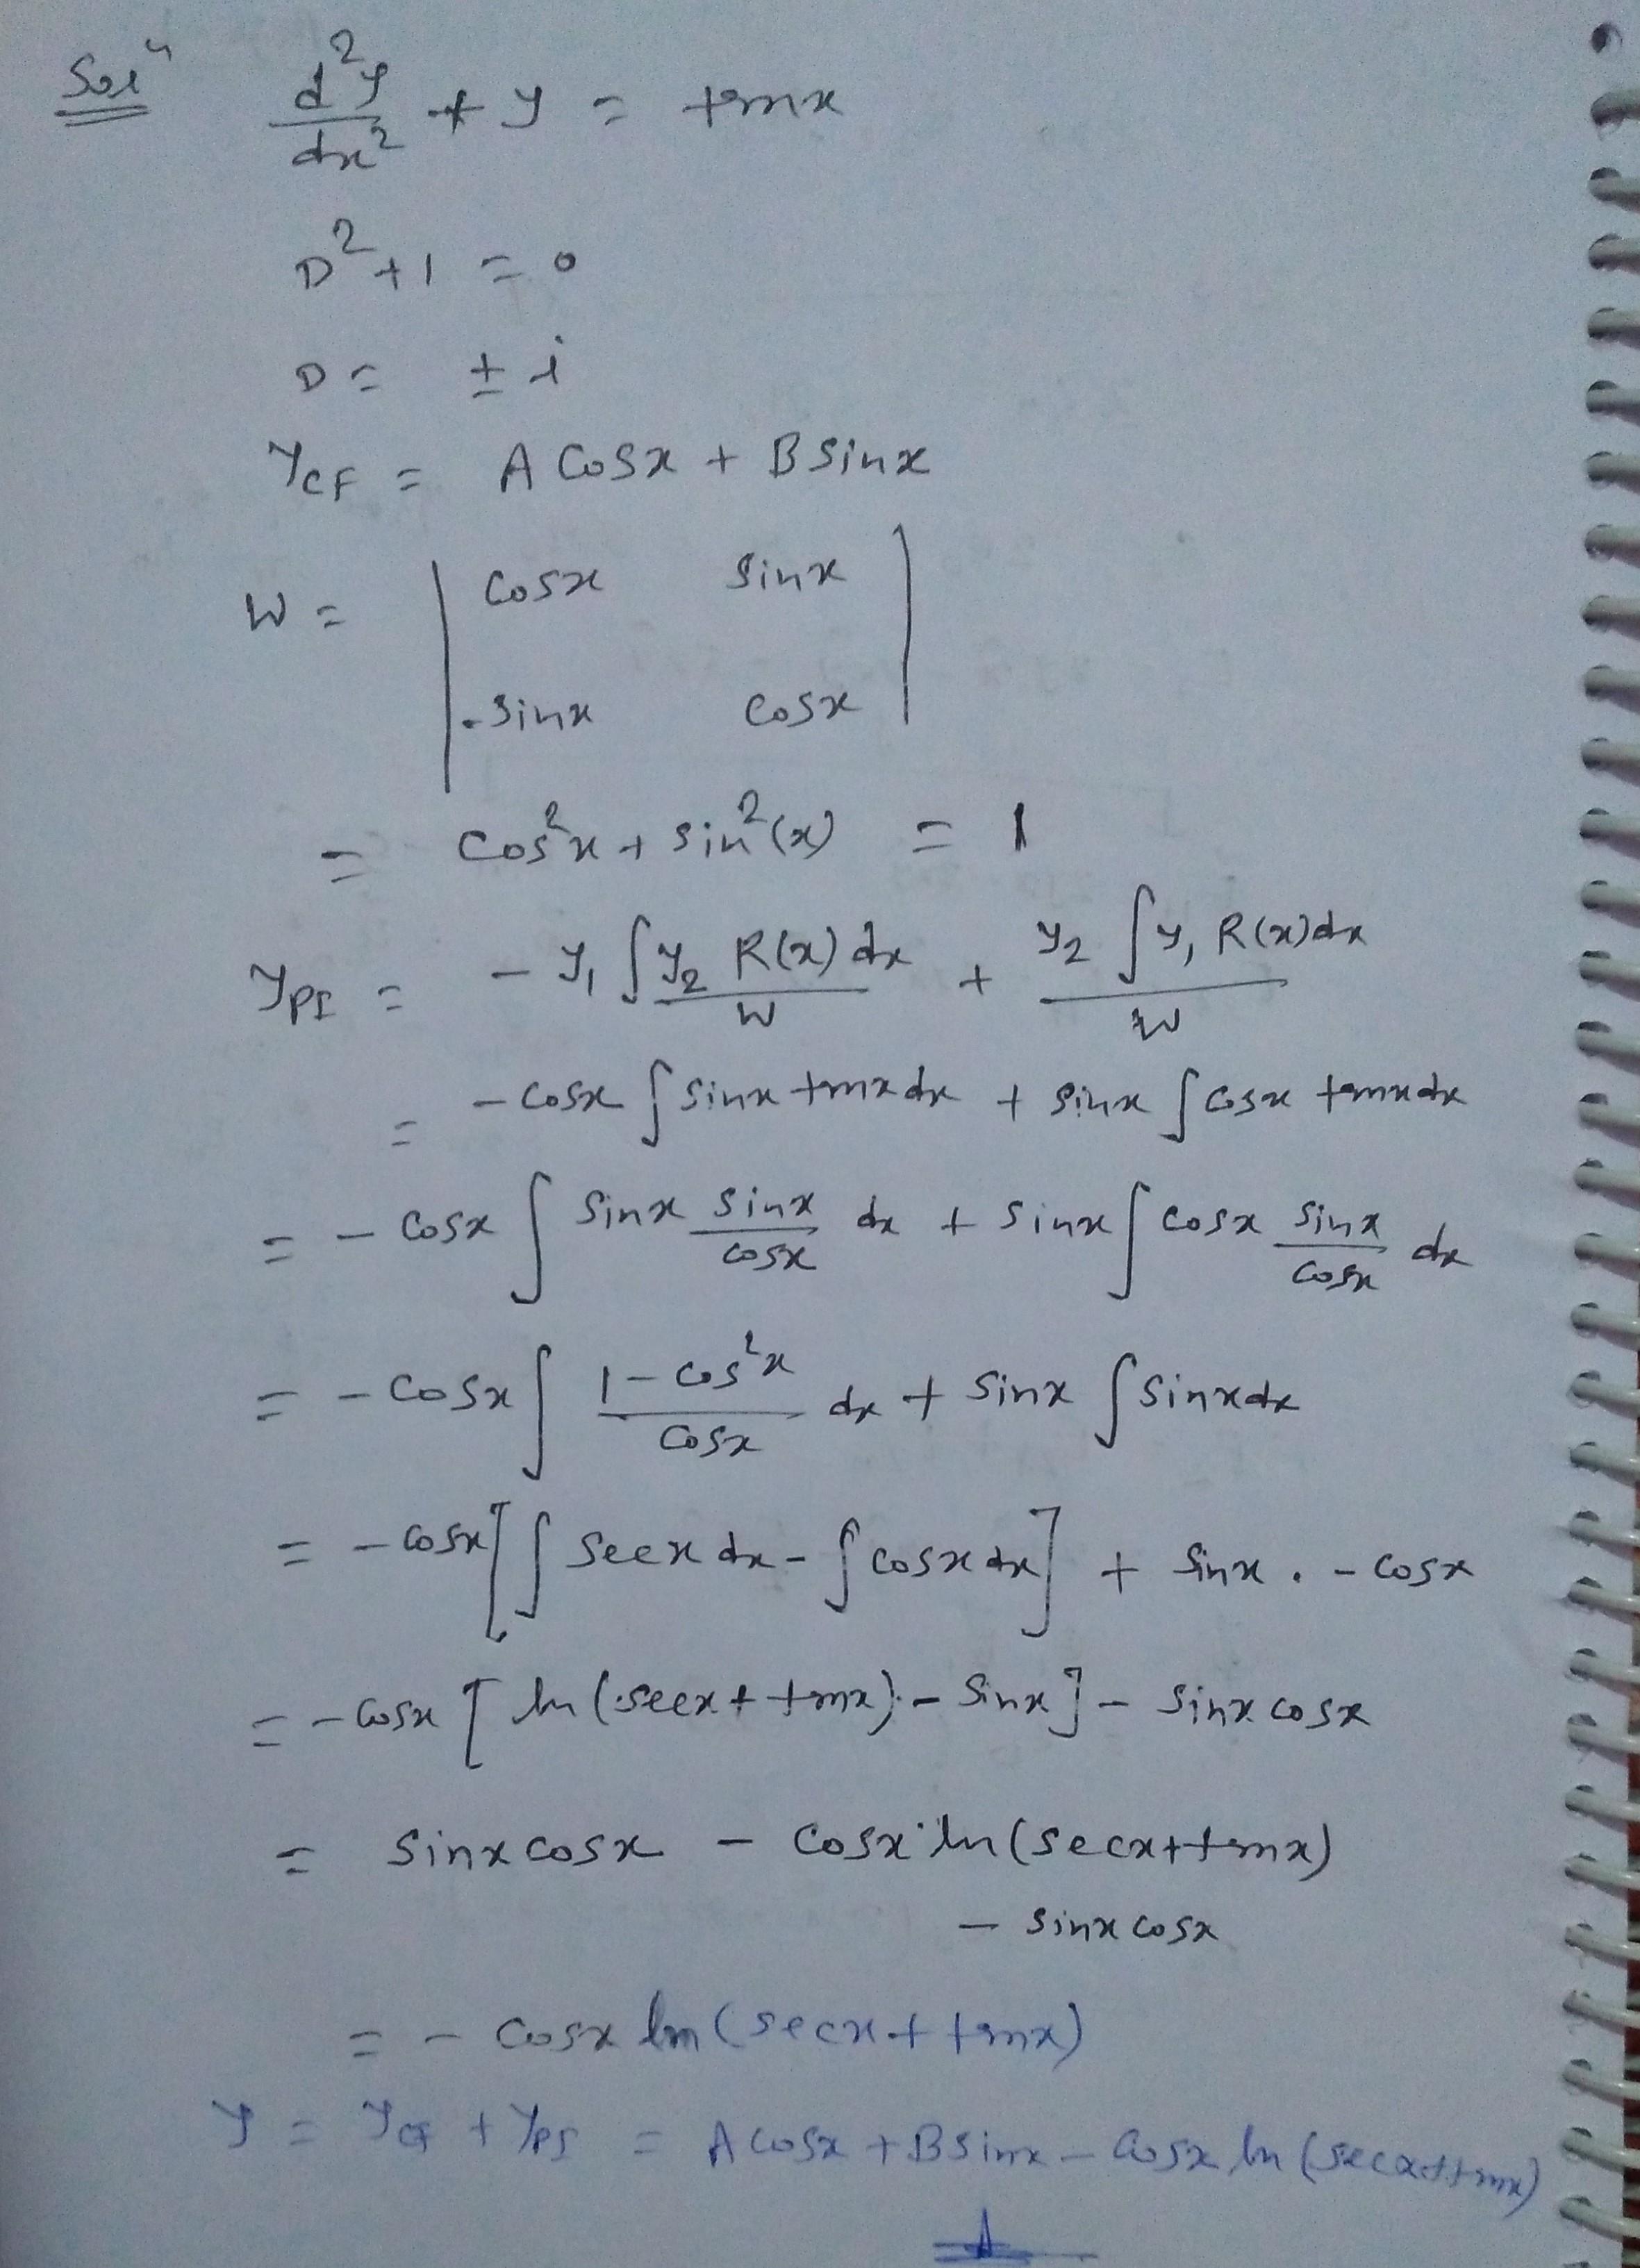 Solⁿ d²y/dx² + y = tanx
D² + 1 = 0
D = ± i
y_CF = A cosx + B sinx
W = | cosx sinx |
| -sinx cosx |
= cos²x + sin²(x) = 1
y_PI = - y₁ ∫ y₂ R(x) dx / W + y₂ ∫ y₁ R(x) dx / W
= - cosx ∫ sinx tanx dx + sinx ∫ cosx tanx dx
= - cosx ∫ sinx sinx/cosx dx + sinx ∫ cosx sinx/cosx dx
= - cosx ∫ (1 - cos²x)/cosx dx + sinx ∫ sinx dx
= - cosx [ ∫ secx dx - ∫ cosx dx ] + sinx . - cosx
= - cosx [ ln (secx + tanx) - sinx ] - sinx cosx
= sinx cosx - cosx ln (secx + tanx)
- sinx cosx
= - cosx ln (secx + tanx)
y = y_CF + y_PI = A cosx + B sinx - cosx ln (secx + tanx)